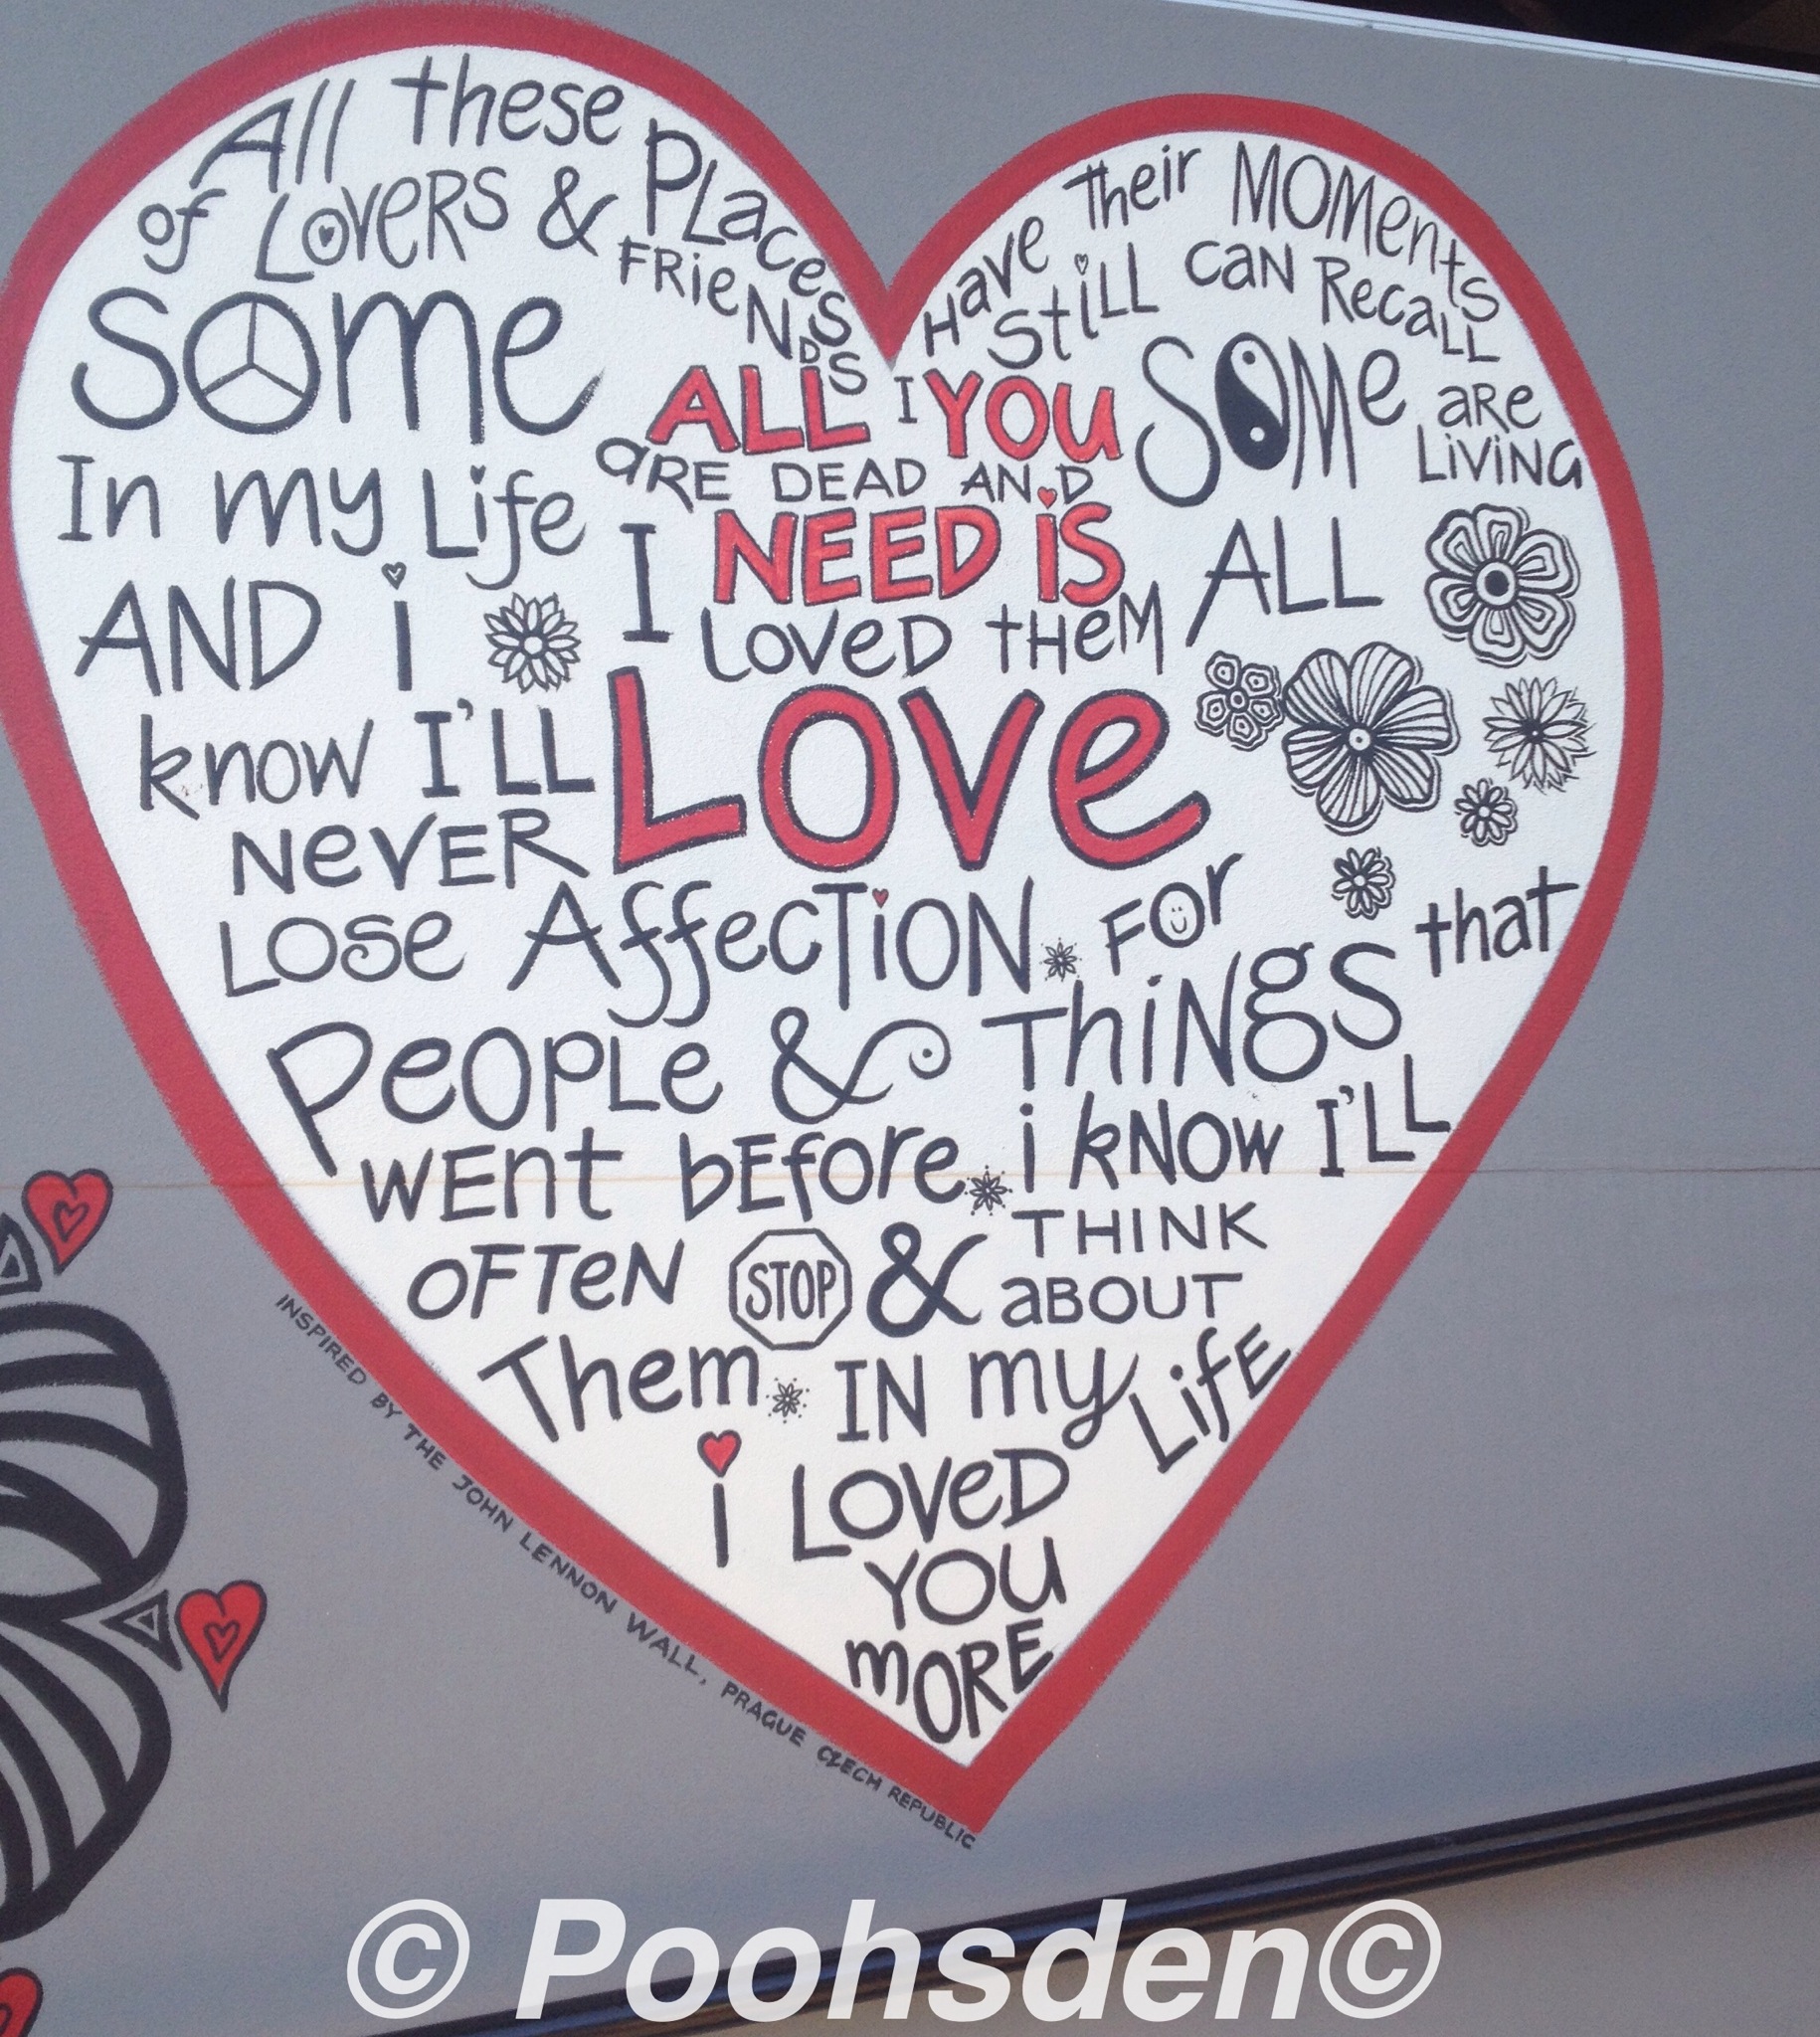 All these PLaces Have Their MOMents
of LOVERS & FRieNDS I Still caN RecaLL
Some aRE DEAD AND SOMe are LiViNG
In my Life I LOVeD tHeM ALL
ALL YOU
NEED iS
LOVe
AND i
know I'LL
NeVER
LOSe AffecTiON FOr
PeOPLe & ThiNgS that
WEnt bEfore i kNOW I'LL
OFTeN STOP & THINK
aBOUT
Them IN my LifE
i LOVeD
YOU
mORE
INSPIRED BY THE JOHN LENNON WALL, PRAGUE CZECH REPUBLIC
© Poohsden©